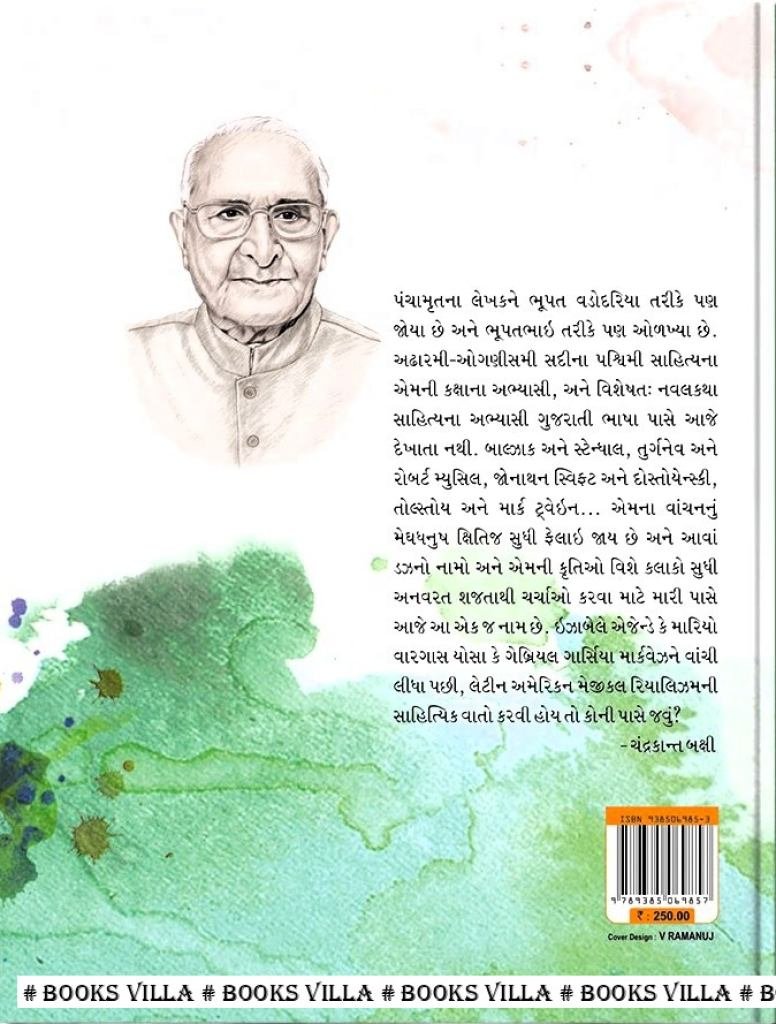 પંચામૃતના લેખકને ભૂપત વડોદરિયા તરીકે પણ
જોયા છે અને ભૂપતભાઇ તરીકે પણ ઓળખ્યા છે.
અઢારમી-ઓગણીસમી સદીના પશ્ચિમી સાહિત્યના
એમની કક્ષાના અભ્યાસી, અને વિશેષતઃ નવલકથા
સાહિત્યના અભ્યાસી ગુજરાતી ભાષા પાસે આજે
દેખાતા નથી. બાલ્ઝાક અને સ્ટેન્ધાલ, તુર્ગનેવ અને
રોબર્ટ મ્યુસિલ, જોનાથન સ્વિફ્ટ અને દોસ્તોયેન્સ્કી,
તોલ્સ્તોય અને માર્ક ટ્વેઇન... એમના વાંચનનું
મેઘધનુષ ક્ષિતિજ સુધી ફેલાઇ જાય છે અને આવાં
ડઝનો નામો અને એમની કૃતિઓ વિશે કલાકો સુધી
અનવરત શજતાથી ચર્ચાઓ કરવા માટે મારી પાસે
આજે આ એક જ નામ છે. ઇઝાબેલે એજેન્ડે કે મારિયો
વારગાસ યોસા કે ગેબ્રિયલ ગાર્સિયા માર્કવેઝને વાંચી
લીધા પછી, લેટીન અમેરિકન મેજીકલ રિયાલિઝમની
સાહિત્યિક વાતો કરવી હોય તો કોની પાસે જવું?
- ચંદ્રકાન્ત બક્ષી
ISBN 938506985-3
9 789385 069857
₹ : 250.00
Cover Design : V RAMANUJ
# BOOKS VILLA # BOOKS VILLA # BOOKS VILLA # BOOKS VILLA # B